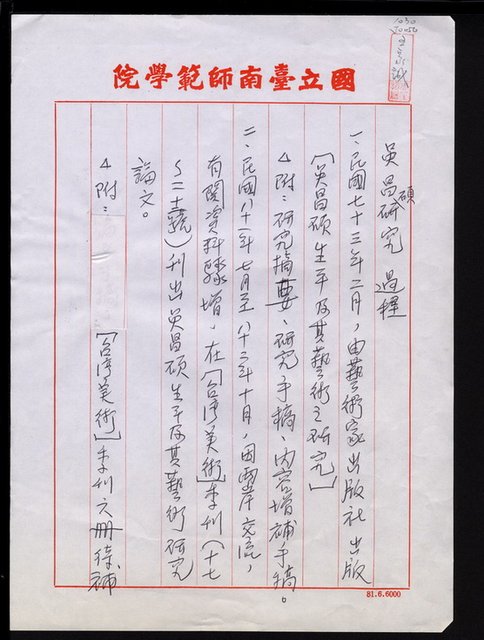 國立臺南師範學院
吳昌碩研究過程
一、民國七十三年二月,由藝術家出版社出版
[吳昌碩生平及其藝術之研究]
△附:研究摘要、研究手稿、內容增補手稿。
二、民國八十一年七月至八十二年十月,因兩岸交流,
有關資料驟增,在[台灣美術]季刊(十七
~二十三號)刊出吳昌碩生平及其藝術研究
論文。
△附:[台灣美術]季刊六冊待補
81.6.6000